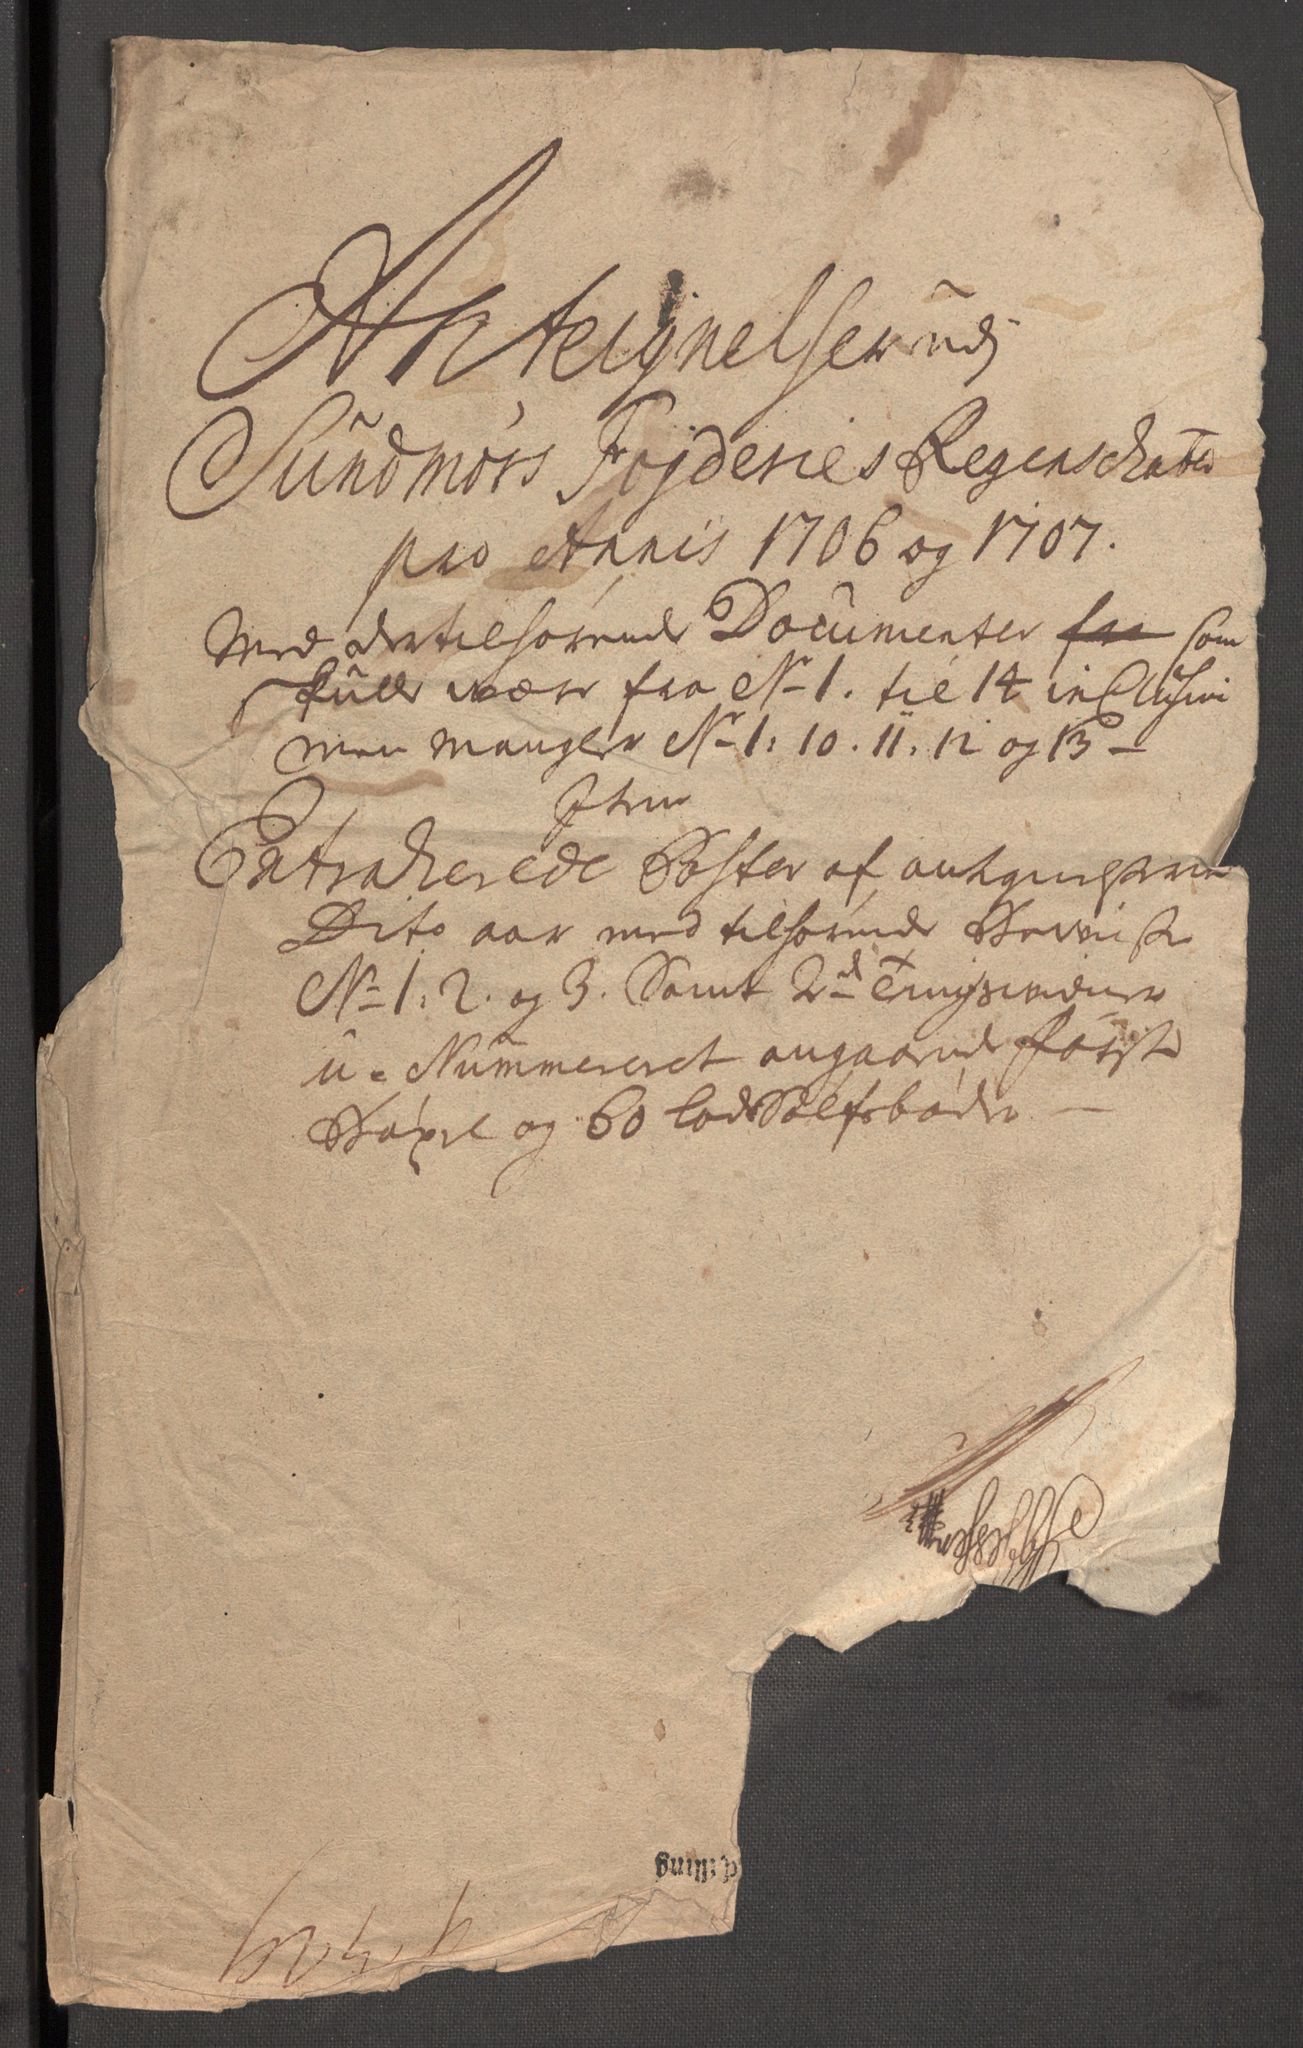 Antegnelser udj
Sundmørs Fogderies Regenschaber
pro Annis 1706 og 1707.
Med dertilhørende Documenter fra som
skulle være fra No 1. til 14 inclusive
men mangler No 1: 10. 11: 12 og 13 –
Item
Extraherede Poster af antegnelserne
Dito aar med tilhørende Beviiser
No 1: 2. og 3. Samt 2de Tingsvidner
u-Nummereret angaaende første
og 60 lod Sølfs bøder –